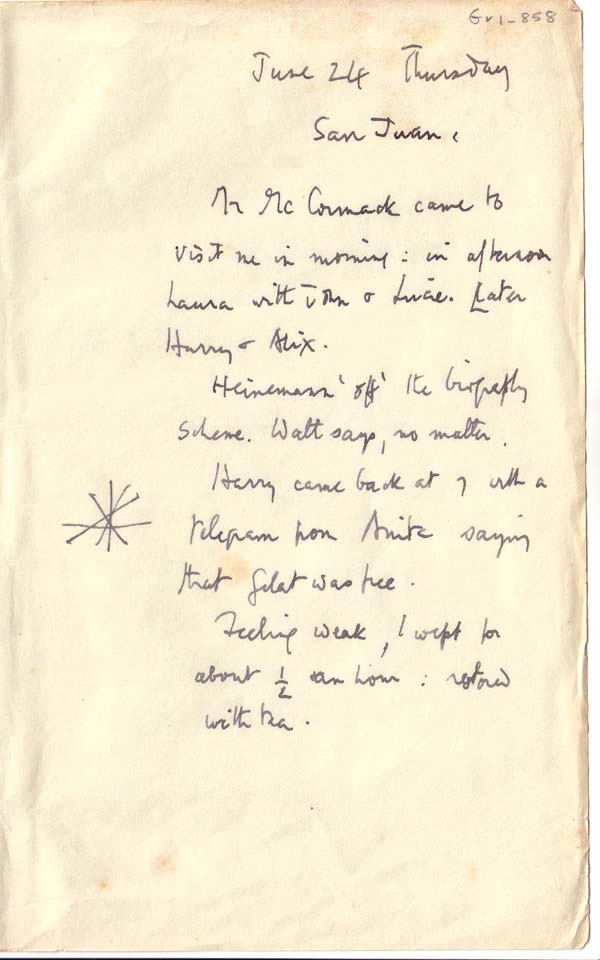 Gv1-858
June 24 Thursday
San Juan.
Mr McCormack came to
visit me in morning : in afternoon
Laura with John & Lucie. Later
Harry & Alix.
Heinemann 'off' the biography
scheme. Walt says, no matter.
Harry came back at 7 with a
telegram from Anita saying
that Gelat was free.
Feeling weak, I wept for
about ½ an hour : restored
with tea.